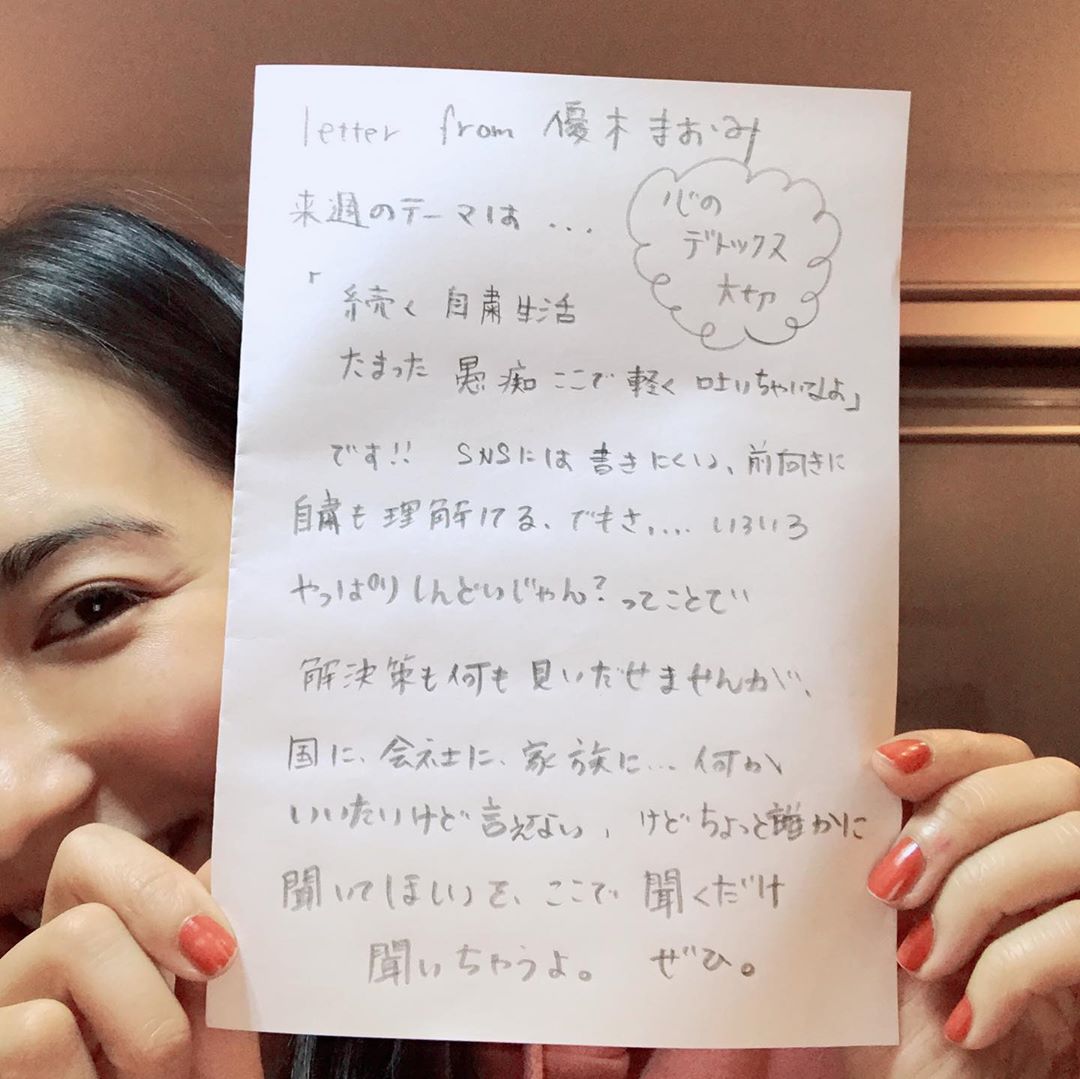 letter from 優木まおみ
来週のテーマは...
心の
デトックス
大切
「続く 自粛生活
たまった 愚痴 ここで 軽く 吐いちゃいなよ」
です!! SNSには書きにくい、前向きに
自粛も理解してる、でもさ、... いろいろ
やっぱりしんどいじゃん?ってことで
解決策も何も見いだせませんが、
国に、会社に、家族に... 何か
いいたいけど言えない、けどちょっと誰かに
聞いてほしいを、ここで聞くだけ
聞いちゃうよ。 ぜひ。